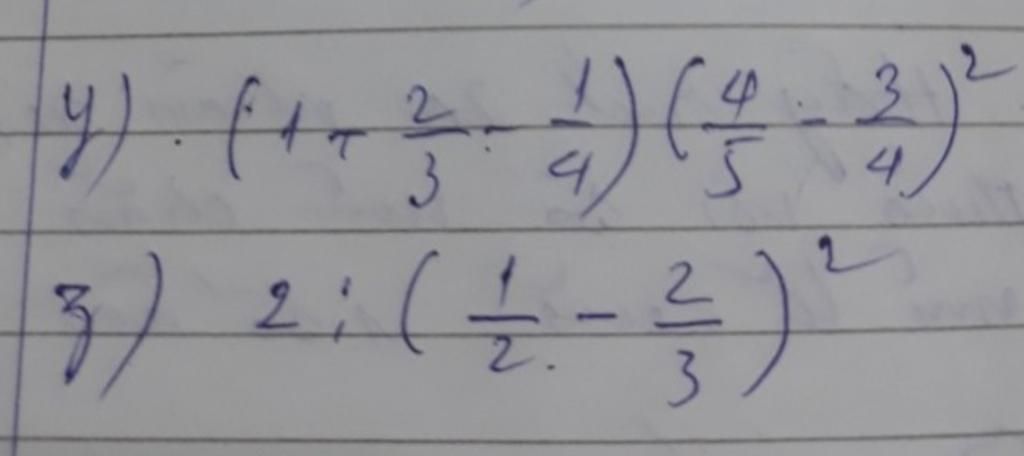 y) (1 + 2/3 - 1/4) (4/5 - 3/4)²
z) 2 : (1/2 - 2/3)²